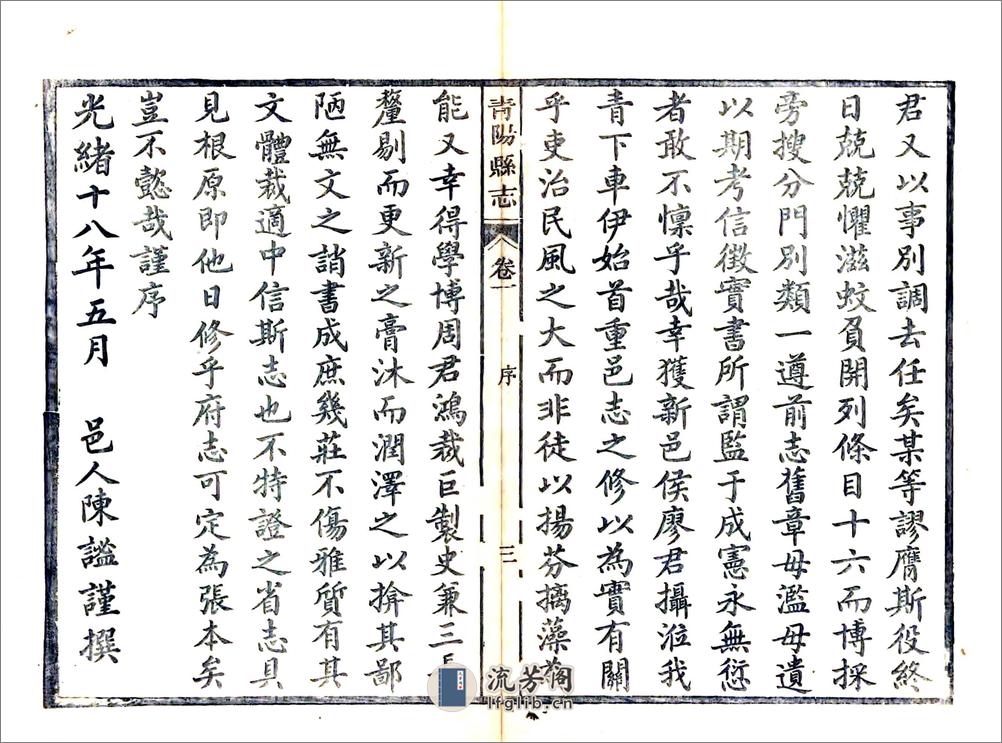 君又以事別調去任矣某等謬膺斯役終
日兢兢懼滋蚊負開列條目十六而博採
旁搜分門別類一遵前志舊章毋濫毋遺
以期考信徵實書所謂監于成憲永無愆
者敢不懍乎哉幸獲新邑侯廖君攝涖我
青下車伊始首重邑志之修以為實有關
乎吏治民風之大而非徒以揚芬摛藻為
青陽縣志
卷一
序
三
能又幸得學博周君鴻裁巨製史兼三長
釐剔而更新之膏沐而潤澤之以揜其鄙
陋無文之誚書成庶幾莊不傷雅質有其
文體裁適中信斯志也不特證之省志具
見根原即他日修乎府志可定為張本矣
豈不懿哉謹序
光緒十八年五月 邑人陳謐謹撰
流芳閣
lfglib.cn